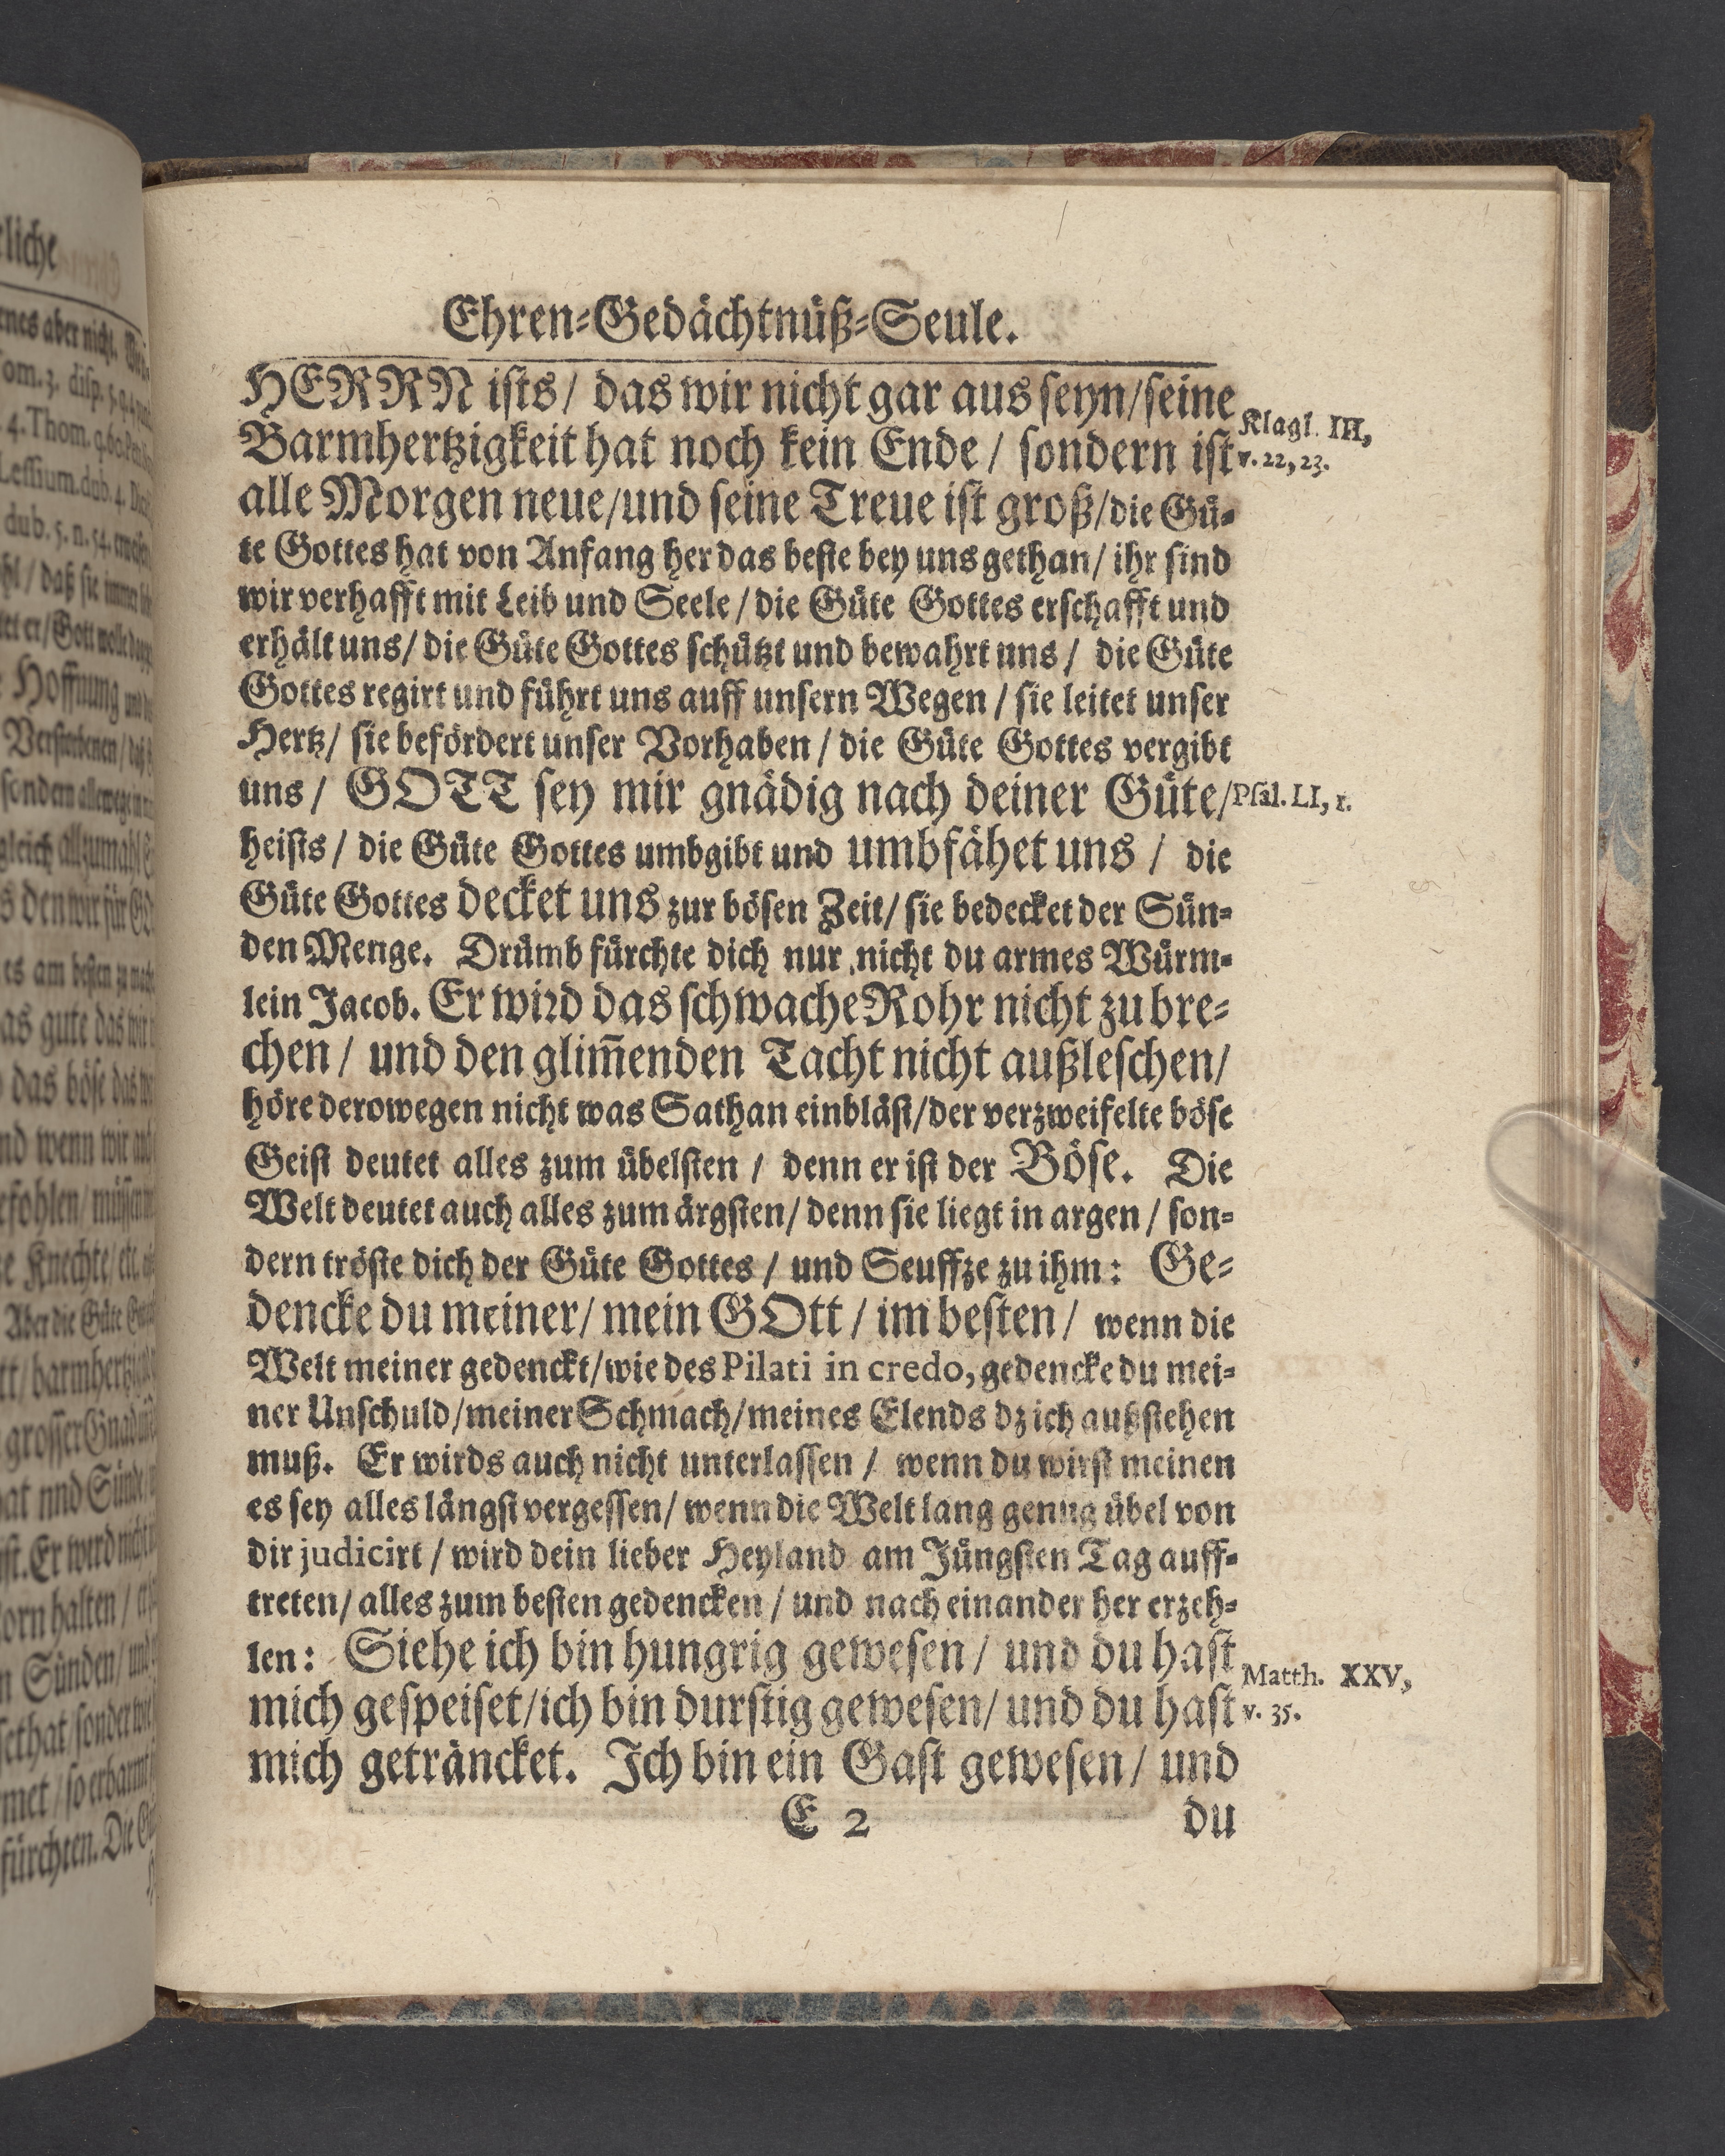 Ehren-Gedächtnüß-Seule.
HERRN ists / das wir nicht gar aus seyn/seine
Barmhertzigkeit hat noch kein Ende / sondern ist
alle Morgen neue/und seine Treue ist groß/die Gü-
te Gottes hat von Anfang her das beste bey uns gethan / ihr sind
wir verhafft mit Leib und Seele / die Güte Gottes erschafft und
erhält uns/ die Güte Gottes schützt und bewahrt uns / die Güte
Gottes regirt und führt uns auff unsern Wegen / sie leitet unser
Hertz/ sie befördert unser Vorhaben / die Güte Gottes vergibt
uns / GOTT sey mir gnädig nach deiner Güte/
heists / die Güte Gottes umbgibt und umbfähet uns / die
Güte Gottes decket uns zur bösen Zeit/ sie bedecket der Sün-
den Menge. Drümb fürchte dich nur nicht du armes Würm-
lein Jacob. Er wird das schwache Rohr nicht zu bre-
chen / und den glim̅enden Tacht nicht außleschen/
höre derowegen nicht was Sathan einbläst/der verzweifelte böse
Geist deutet alles zum übelsten / denn er ist der Böse. Die
Welt deutet auch alles zum ärgsten/ denn sie liegt in argen / son-
dern tröste dich der Güte Gottes / und Seuffze zu ihm: Ge-
dencke du meiner/ mein GOtt / im besten / wenn die
Welt meiner gedenckt/wie des Pilati in credo, gedencke du mei-
ner Unschuld/meiner Schmach/meines Elends dz ich außstehen
muß. Er wirds auch nicht unterlassen / wenn du wirst meinen
es sey alles längst vergessen/ wenn die Welt lang genug übel von
dir judicirt / wird dein lieber Heyland am Jüngsten Tag auff-
treten/ alles zum besten gedencken / und nach einander her erzeh-
len: Siehe ich bin hungrig gewesen / und du hast
mich gespeiset/ich bin durstig gewesen/ und du hast
mich geträncket. Ich bin ein Gast gewesen / und
E 2 du
Klagl. III,
v. 22, 23.
Psal. LI, 1.
Matth. XXV,
v. 35.